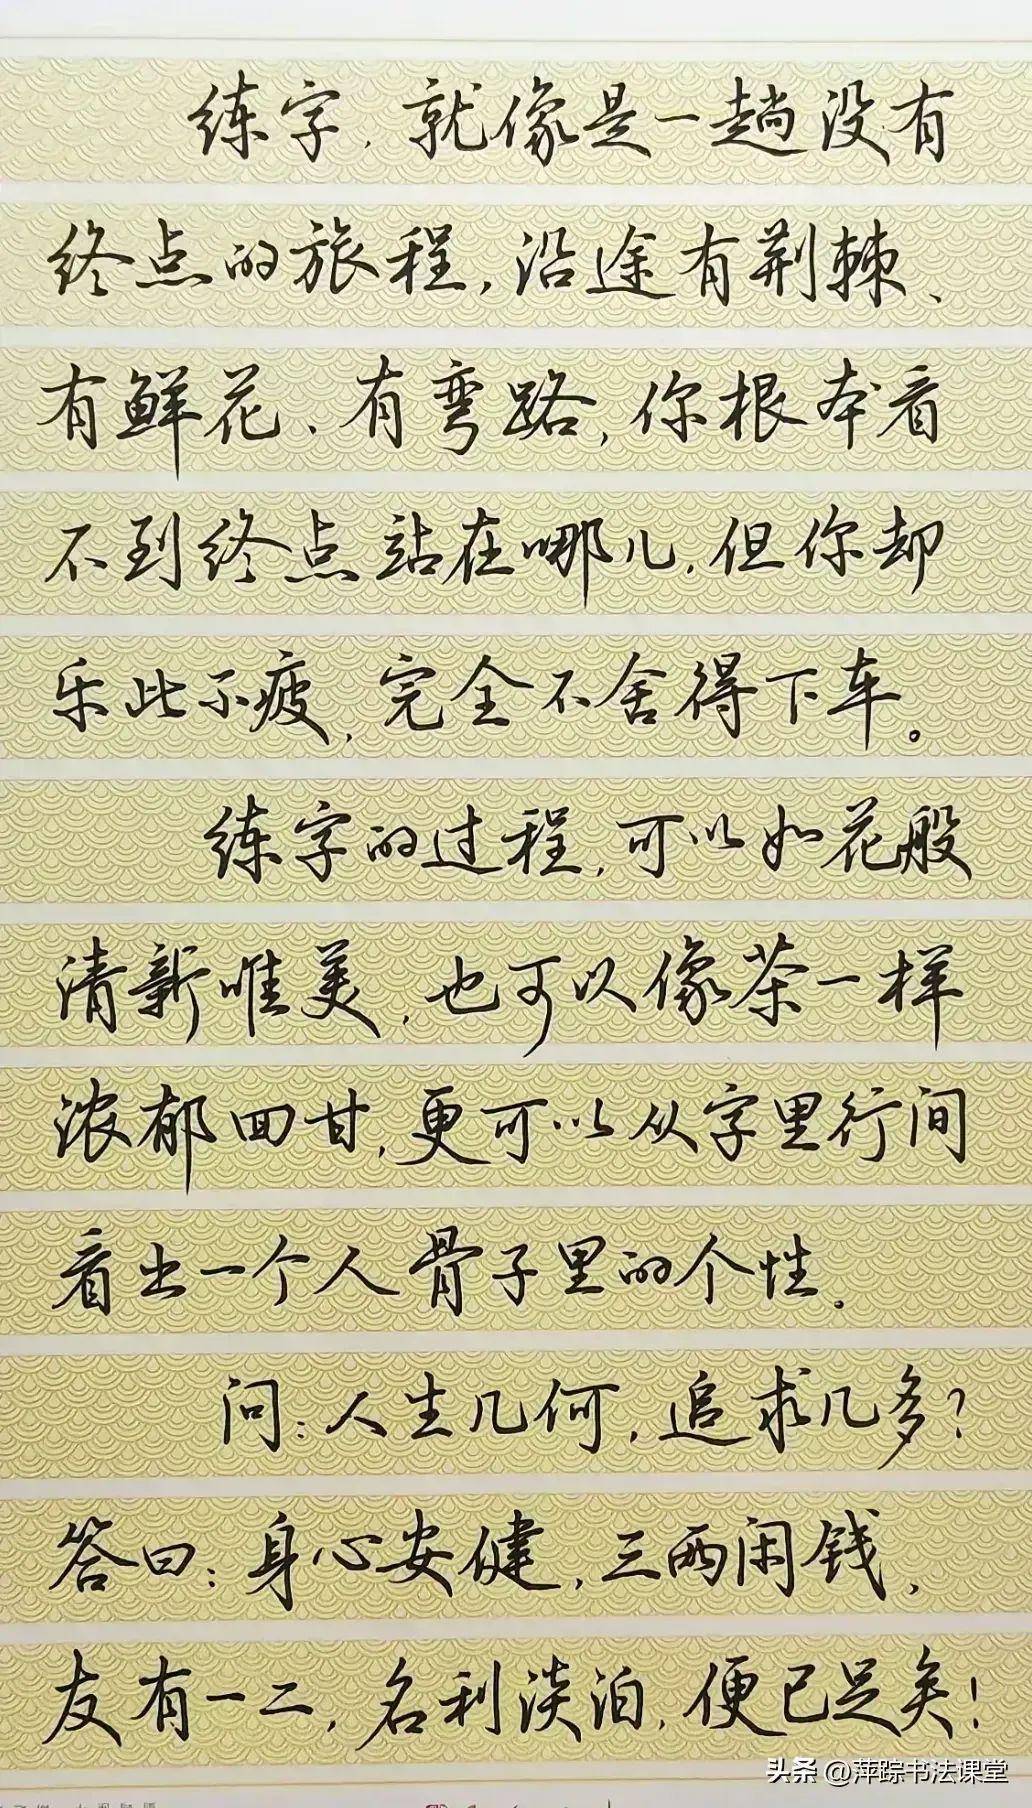 练字,就像是一趟没有
终点的旅程,沿途有荆棘、
有鲜花、有弯路,你根本看
不到终点站在哪儿,但你却
乐此不疲,完全不舍得下车。
练字的过程,可以如花般
清新唯美,也可以像茶一样
浓郁回甘,更可以从字里行间
看出一个人骨子里的个性。
问:人生几何,追求几多?
答曰:身心安健,三两闲钱,
友有一二,名利淡泊,便已足矣!
头条 @萍踪书法课堂